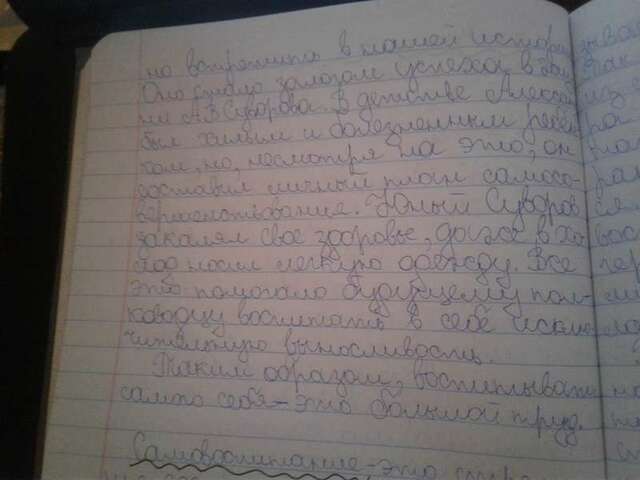 но встретить в нашей истории
Оно стало залогом успеха в жиз-
ни А.В Суворова. В детстве Александр
был хилым и болезненным ребен-
ком, но, несмотря на это, он
составил личный план самосо-
вершенствования. Юный Суворов
закалял свое здоровье, даже в хо-
лод носил легкую одежду. Все
это помогало будущему пол-
ководцу воспитать в себе исклю-
чительную выносливость.
Таким образом, воспитывать
само себя - это большой труд.
Самовоспитание - это